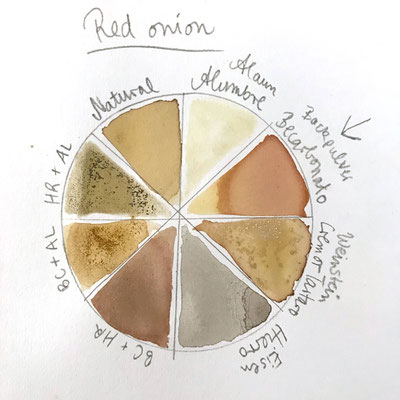 Red onion
Natural
Alaun
Alumbre
Backpulver
Becarbonato
Weinstein
Cremor tartaro
Eisen
Hierro
BC + HR
BC + AL
HR + AL